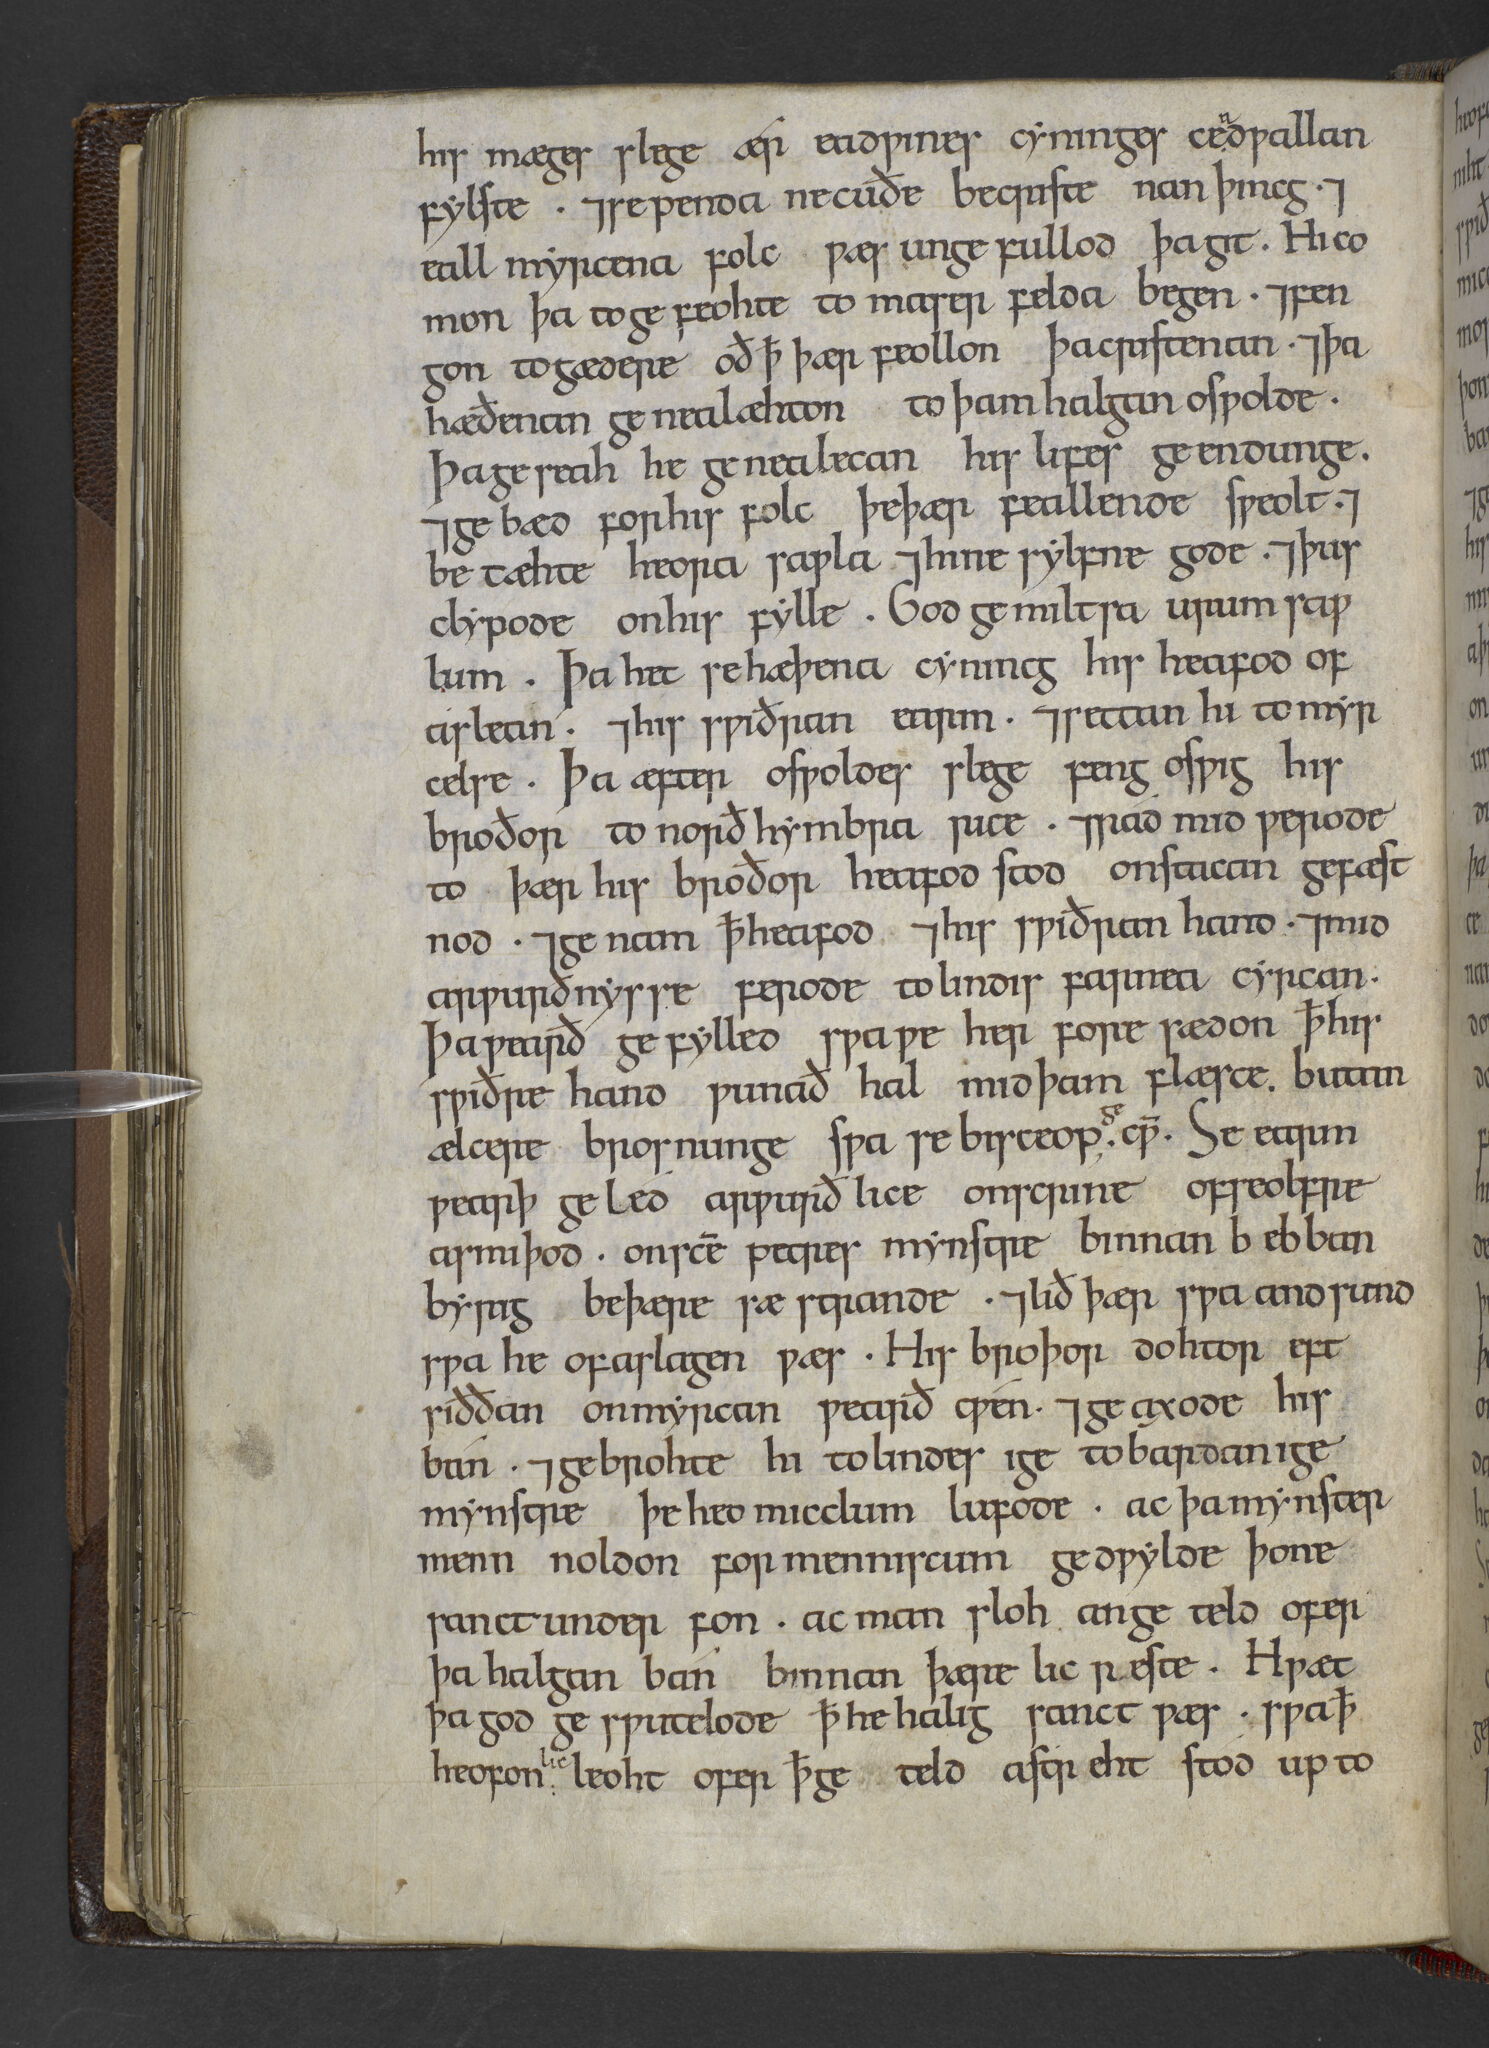 his mæges slege ær eadƿines cyninges cendƿallan
fylste . ⁊ se penda ne cuðe be criste nan þincg . ⁊
eall myrcena folc ƿæs unge fullod þa git . Hi co
mon þa to ge feohte to maser felda begen . ⁊ fen
gon togædere oð ꝥ þær feollon þa cristenan . ⁊ þa
hæðenan ge nealæhton to þam halgan osƿolde .
Þa ge seah he ge nealecan his lifes ge endunge .
⁊ ge bæd for his folc þe þær feallende sƿeolt . ⁊
be tæhte heora saƿla ⁊ hine sylfne gode . ⁊ þus
clypode on his fylle . God ge miltsa urum saƿ
lum . Þa het se hæþena cynincg his heafod of
aslean . ⁊ his sƿiðran earm . ⁊ settan hi to myr
celse . Þa æfter osƿoldes slege feng osƿig his
broðor to norðhymbra rice . ⁊ rád mid ƿerode
to þær his broðor heafod stod on stacan gefæst
nod . ⁊ ge nam ꝥ heafod ⁊ his sƿiðran hand . ⁊ mid
arƿurðnysse ferode to lindis farnea cyrcan .
Þa ƿearð ge fylled sƿa ƿe her fore sædon ꝥ his
sƿiðre hand ƿunað hal mid þam flæsce . butan
ælcere brosnunge sƿa se bisceop ge . cƿ̄ . Se earm
ƿearþ ge léd arƿurðlice on scrine of seolfre
asmiþod . on sc̄e petres mynstre binnan bebban
byrig be þære sæ strande . ⁊ lið þær sƿa andsund
sƿa he of aslagen ƿæs . His broþor dohtor eft
siððan on myrcan ƿearð cƿén . ⁊ ge axode his
bán . ⁊ ge brohte hi to lindes ige to bardan ige
mynstre þe heo micclum lufode . ac þa mynster
menn noldon for menniscum ge dƿylde þone
sanct under fon . ac man sloh an ge teld ofer
þa halgan bán binnan þære lic reste . Hƿæt
þa god ge sƿutelode ꝥ he halig sanct ƿæs . sƿa ꝥ
heofonlic leoht ofer ꝥ ge teld astreht stód up to